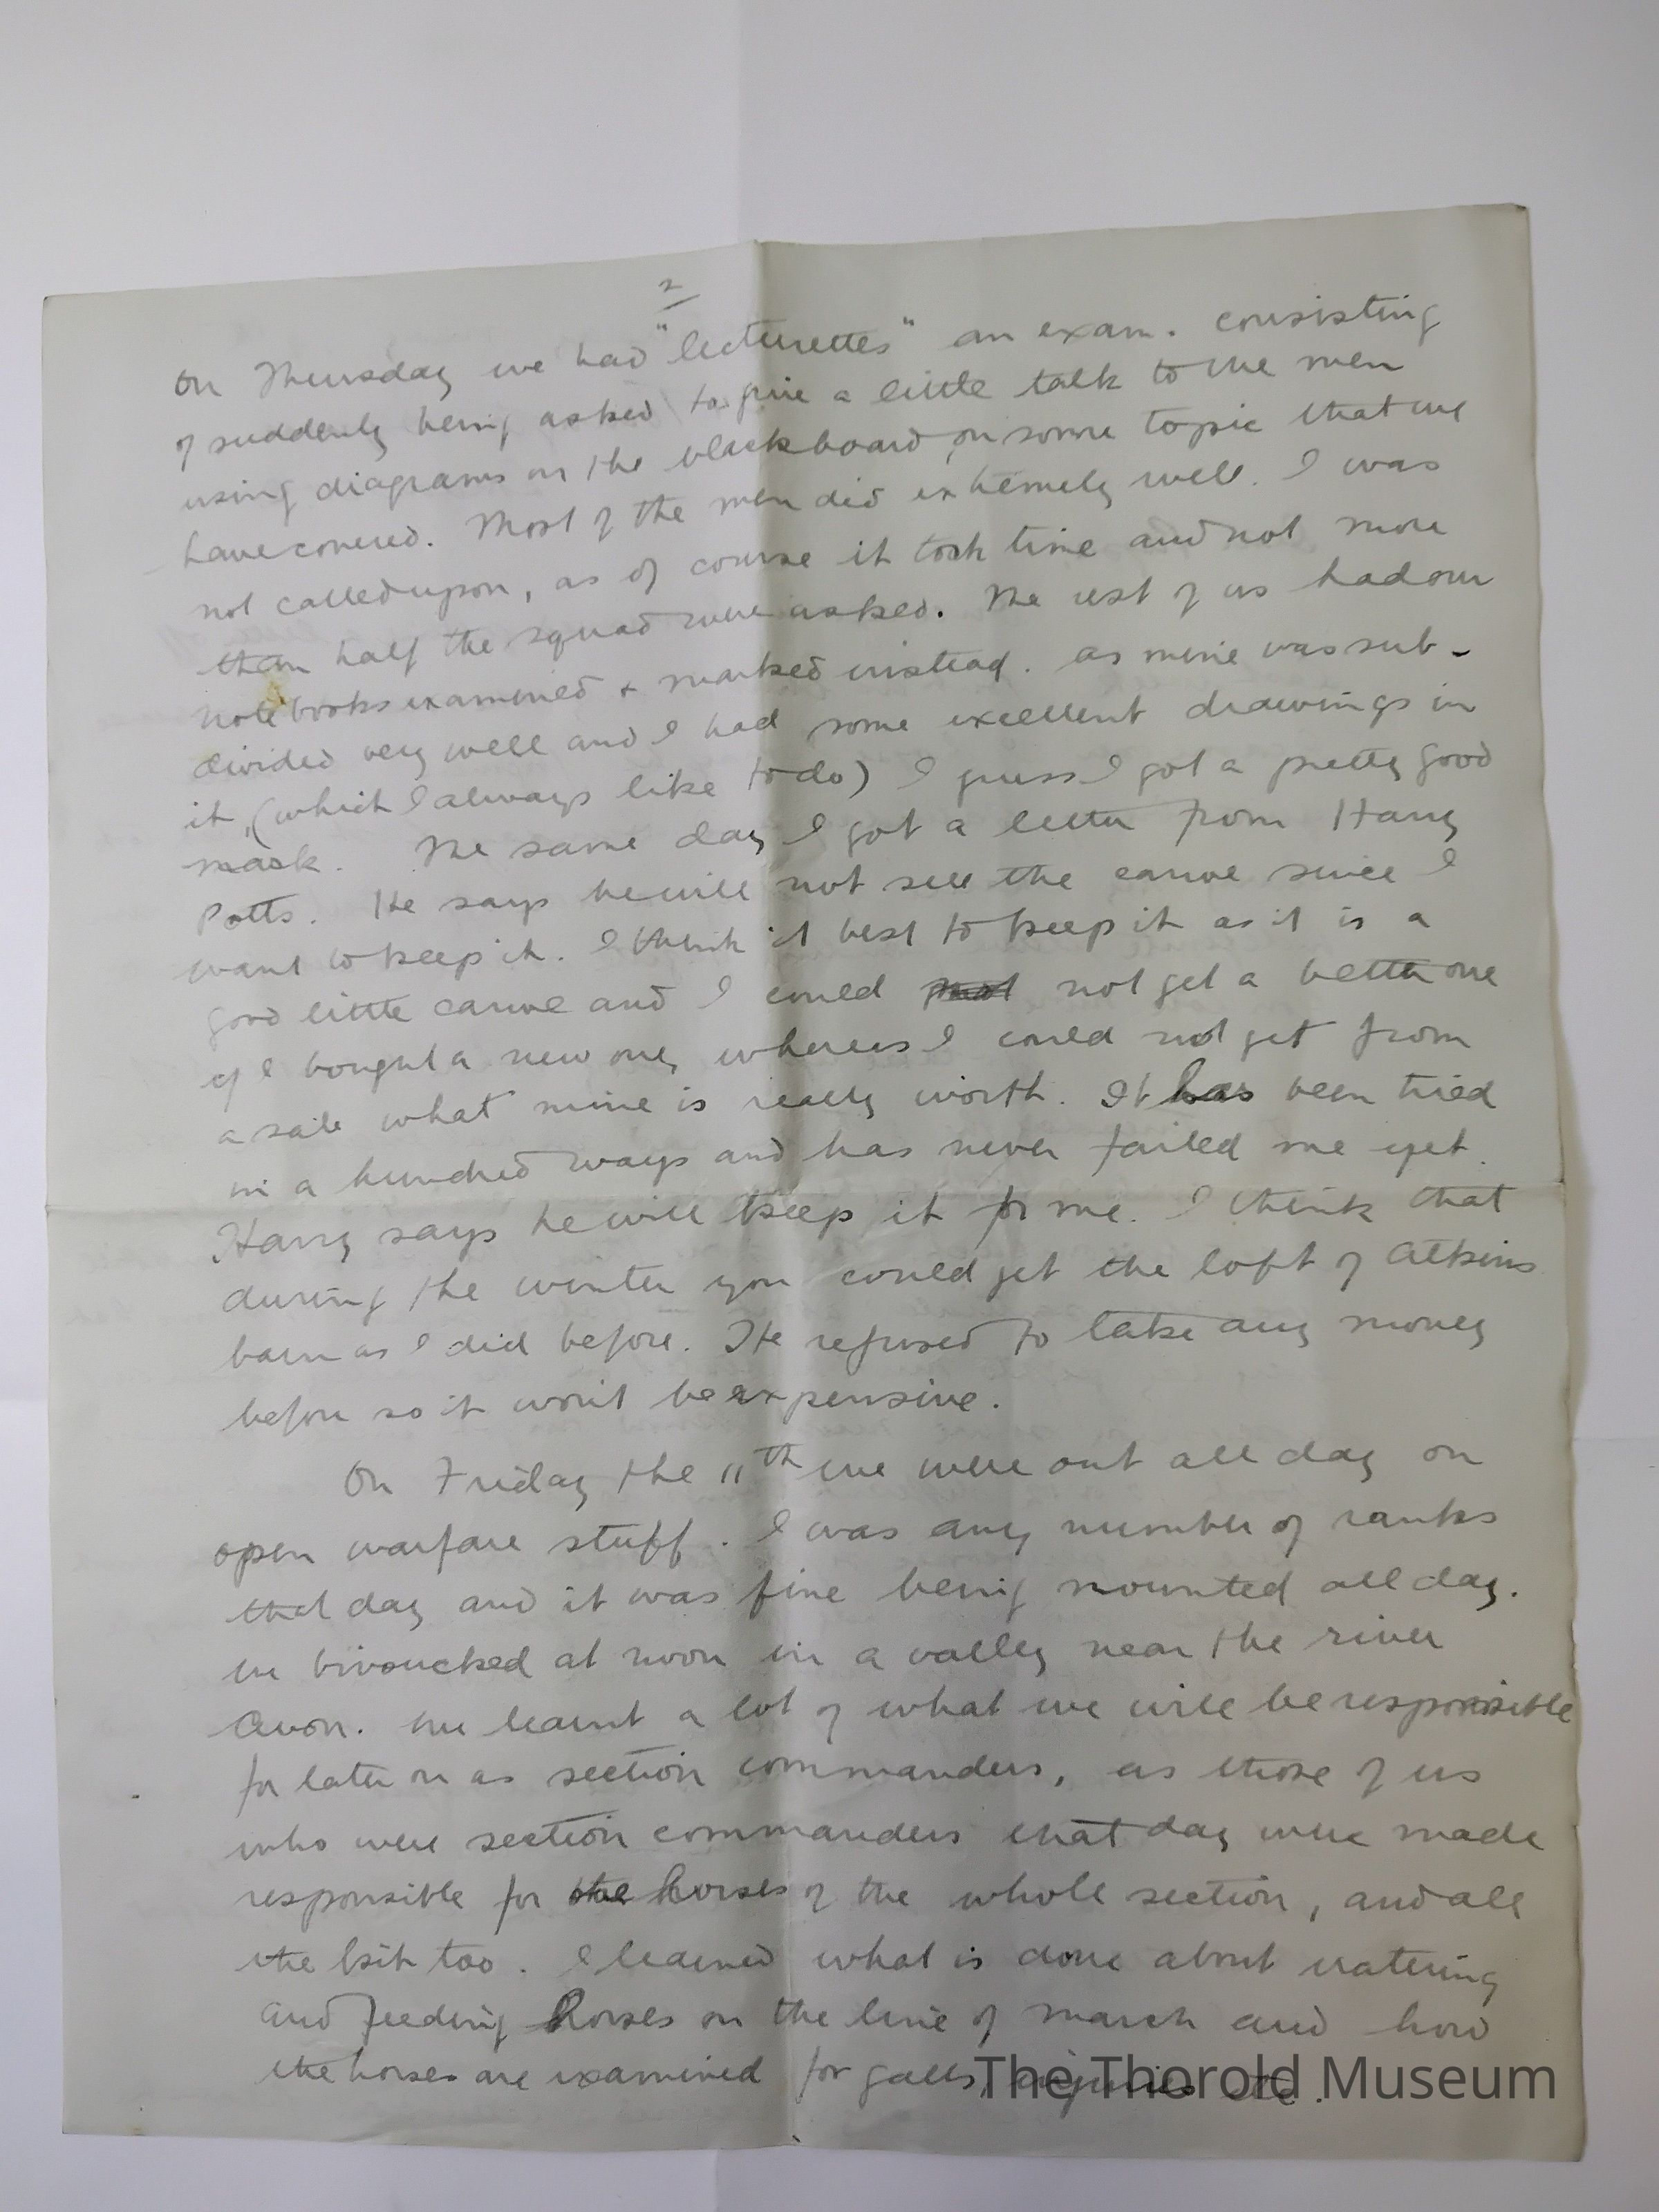 2
On Thursday we had "lecturettes" an exam. consisting
of suddenly being asked to give a little talk to the men
using diagrams on the blackboard, on some topic that we
have covered. Most of the men did extremely well. I was
not called upon, as of course it took time and not more
than half the squad were asked. The rest of us had our
note books examined & marked instead. as mine was sub-
divided very well and I had some excellent drawings in
it, (which I always like to do) I guess I got a pretty good
mark. The same day I got a letter from Harry
Potts. He says he will not sell the canoe since I
want to keep it. I think it best to keep it as it is a
good little canoe and I could not get a better one
if I bought a new one, whereas I could not get from
a sale what mine is really worth. It has been tried
in a hundred ways and has never failed me yet.
Harry says he will keep it for me. I think that
during the winter you could get the loft of Atkins
barn as I did before. He refused to take any money
before so it won't be expensive.
On Friday the 11th we were out all day on
open warfare stuff. I was any number of ranks
that day and it was fine being mounted all day.
We bivoucked at noon in a valley near the river
Avon. We learnt a lot of what we will be responsible
for later on as section commanders, as those of us
who were section commanders that day were made
responsible for the horses of the whole section, and all
the kit too. I learned what is done about watering
and feeding horses on the line of march and how
the horses are examined for galls, injuries etc.
The Thorold Museum